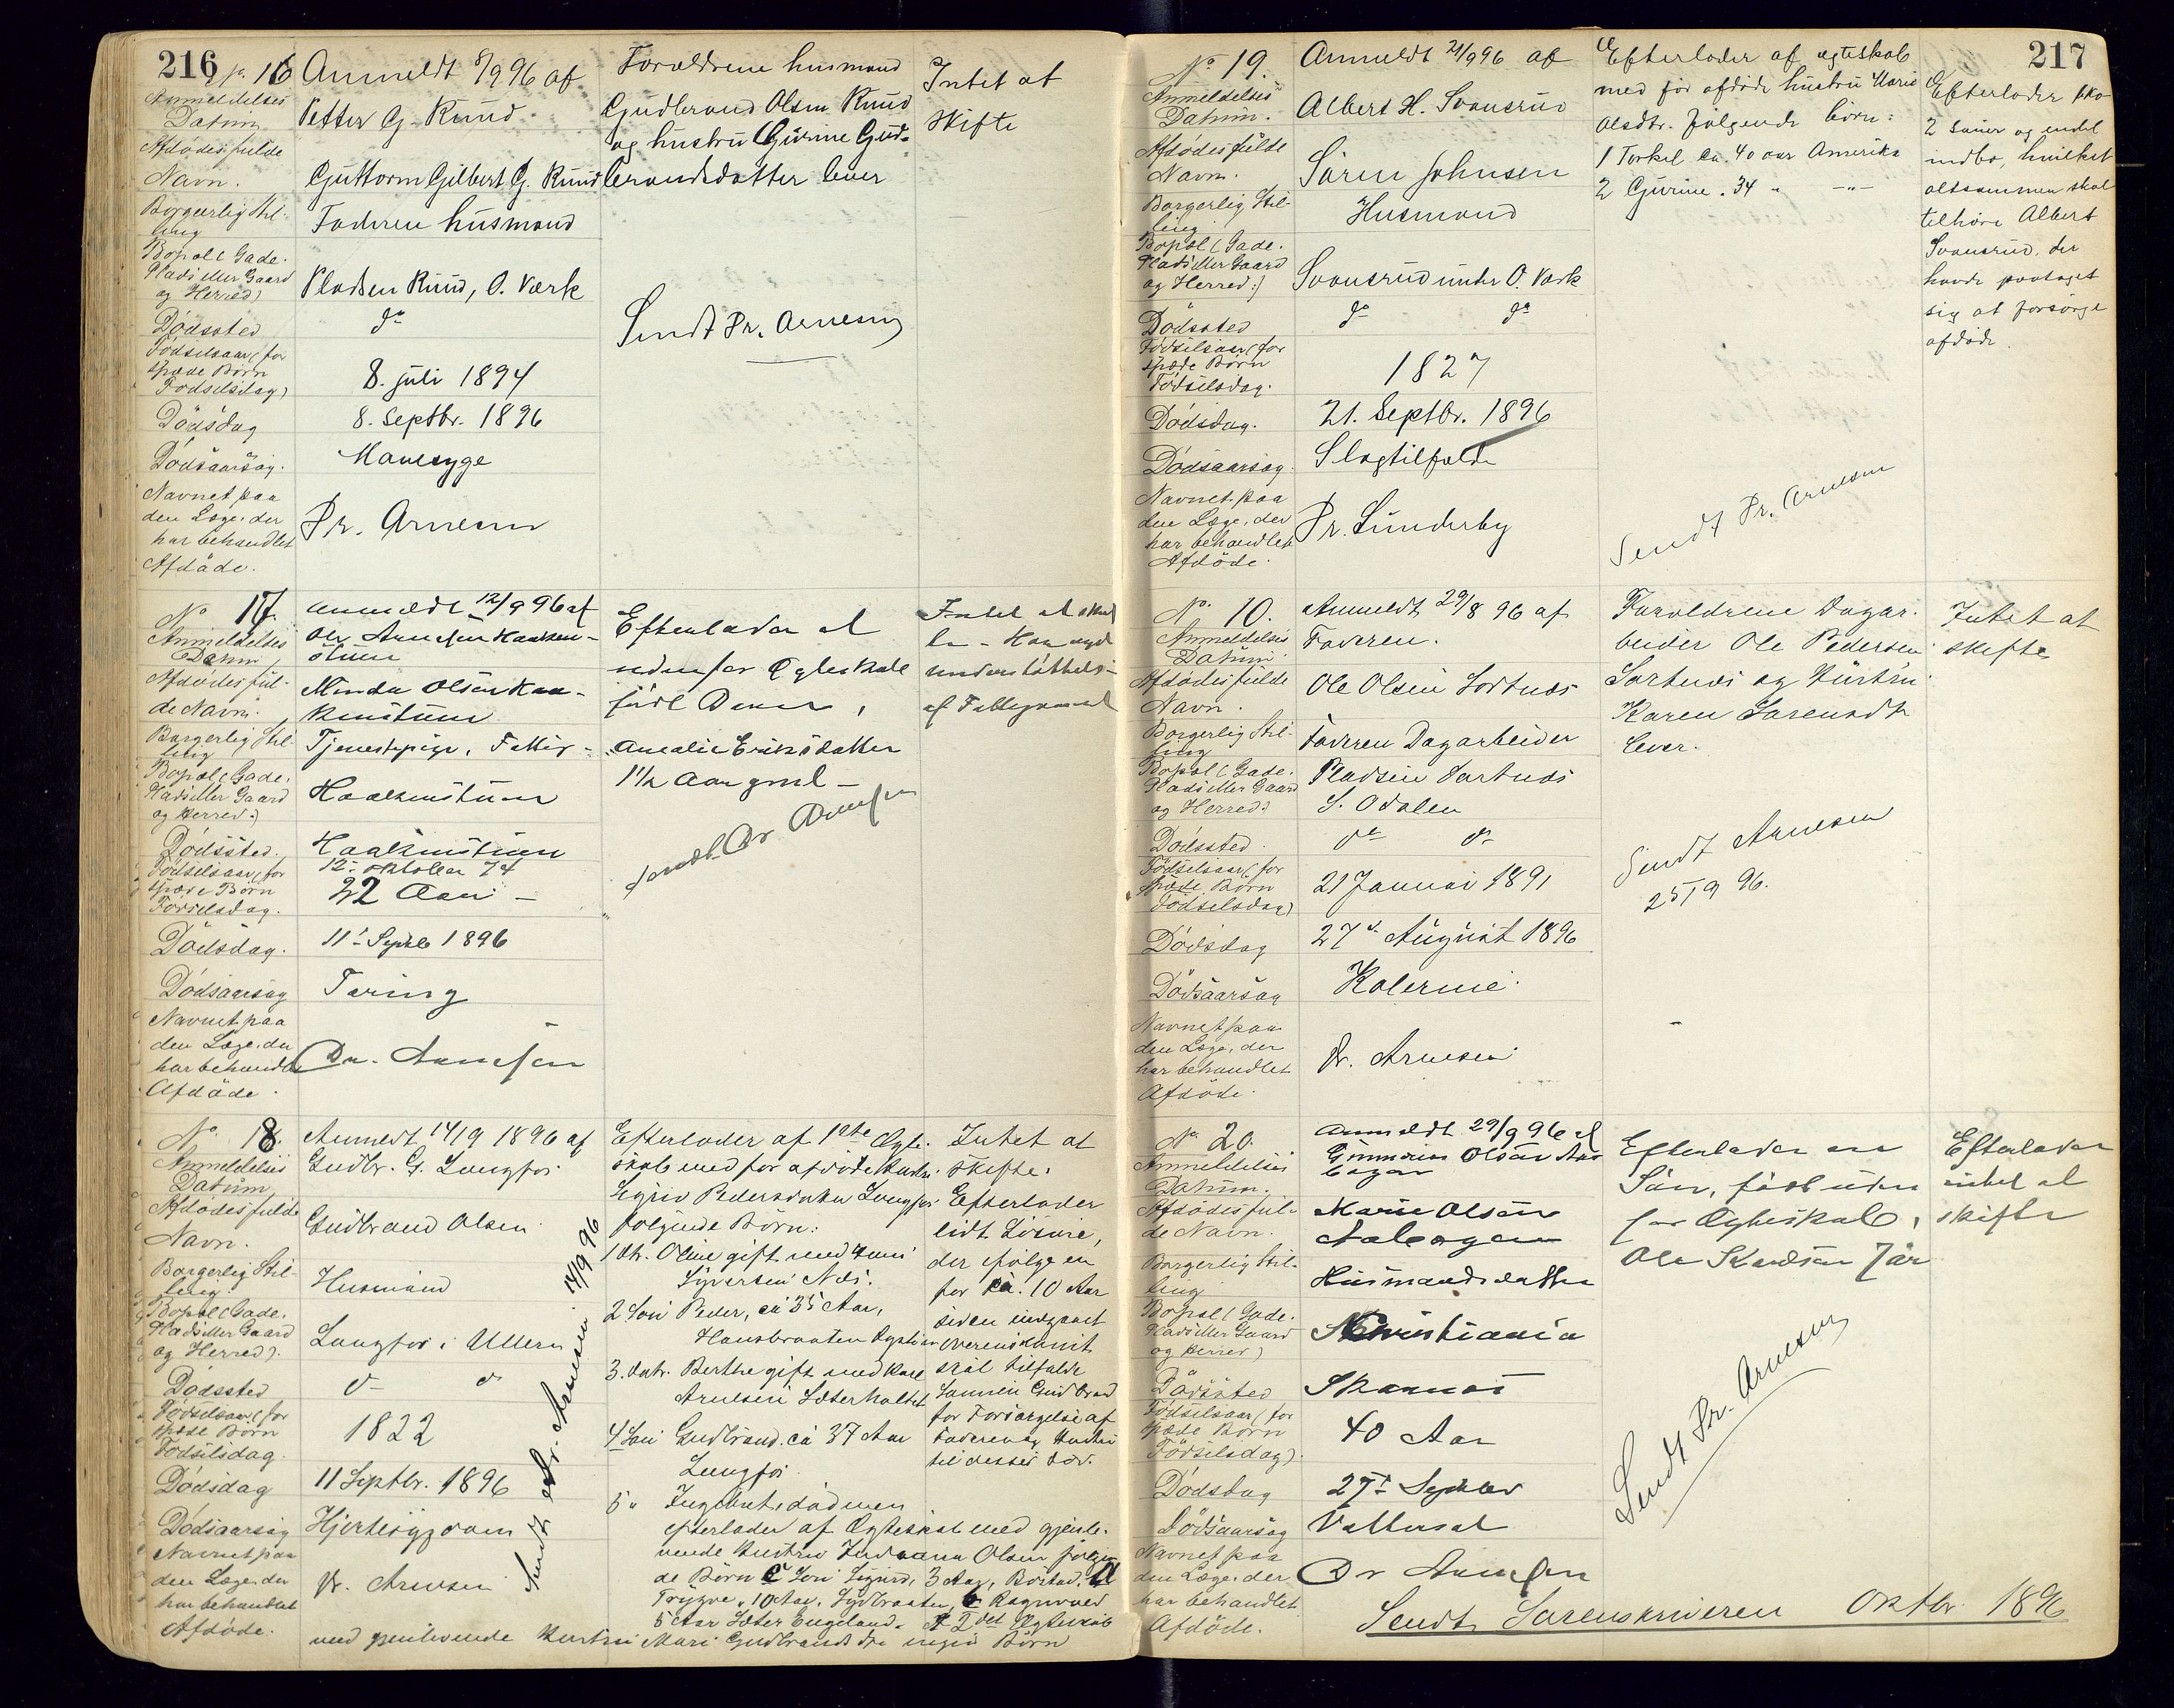 216
No. 16 Anmeldt 8/9 96 af
Anmeldelses Datum
Petter G. Ruud
Afdødes fulde Navn.
Guttorm Gilbert G. Ruud
Borgerlig Stilling
Faderen husmand
Bopæl (Gade. Plads eller Gaard og Herred)
Pladsen Ruud, O. Værk
Dødssted
do
Fødselsaar (for spæde Børn Fødselsdag)
8. juli 1894
Dødsdag
8. Septbr. 1896
Dødsaarsag.
Mavesyge
Navnet paa den Læge, der har behandlet Afdøde.
Dr. Arnesen
Forældrene husmand
Gudbrand Olsen Ruud
og hustru Gurine Gud-
brandsdatter lever
Sendt Dr. Arnesen
Intet at
skifte
No 17.
Anmeldt 12/9 96 af
Anmeldelses Datum
Ole Arnesen Haaken-
stuen
Afdødes fulde Navn.
Minda Olsen Haa-
kenstuen
Borgerlig Stilling
Tjenestepige. Fattig-
Bopæl (Gade. Plads eller Gaard og Herred)
Haakenstuen
Dødssted.
Haakenstuen
Fødselsaar (for spæde Børn Fødselsdag.
12. oktober 74
22 Aar
Dødsdag.
11 Septb 1896
Dødsaarsag
Tæring
Navnet paa den Læge, der har behandlet Afdøde.
Dr. Arnesen
Efterlader et
udenfor Ægteskab
født Barn,
Amalie Eriksdatter
1 1/2 Aar gml
Sendt Dr Arnesen
Intet at skif-
te
understøttelse
af Fattigvæsenet
No 18.
Anmeldt 14/9 1896 af
Anmeldelses Datum
Gudbr. G. Langfos
Afdødes fulde Navn.
Gudbrand Olsen
Borgerlig Stilling.
Husmand
Bopæl (Gade. Plads eller Gaard og Herred).
Langfos i Ullern
Dødssted
do do
Fødselsaar (for spæde Børn Fødselsdag.
1822
Dødsdag
11 Septbr. 1896
Dødsaarsag
Hjertesygdom
Navnet paa den Læge, der har behandlet Afdøde.
Dr. Arnesen
Sendt Dr. Arnesen 14/9 96
Efterlader af 1ste Ægte-
skab med før afdøde Hustru
Sigrid Pedersdatter Langfos
følgende Børn:
1 Dtr. Oline gift med
Syversen Næs.
2 Søn Peder, ca 35 Aar,
Hansbraaten
3. Datr. Berthe gift med Karl
Arnesen Sæterholtet
4 Søn Gudbrand ca 37 Aar
Langfos
5 " Ingebret død men
efterlader af Ægteskab med gjenle-
vende Hustru Olsen følgen-
de Børn Søn Sigurd, 3 Aar,
Trygve, 10 Aar, Ragnvald
5 Aar Sæter Engeland. I 2det Ægteskab
med gjenlevende Hustru Mari Gudbrandsdtr ingen Børn
Intet at
skifte.
Efterlader
lidt Løsøre,
der ifølge en
for ca. 10 Aar
siden indgaaet
Overenskomst
skal tilfalde
Sønnen Gudbrand
for Forsørgelse af
Faderen og Hustru
til deres Død.
217
No 19.
Anmeldt 21/9 96 af
Anmeldelses Datum.
Albert H. Svensrud
Afdødes fulde Navn.
Søren Johnsen
Borgerlig Stilling
Husmand
Bopæl (Gade. Plads eller Gaard og Herred.)
Svensrud under O. Værk
Dødssted
do do
Fødselsaar (for spæde Børn Fødselsdag.
1827
Dødsdag.
21. Septbr. 1896
Dødsaarsag.
Slagtilfælde
Navnet paa den Læge, der har behandlet Afdøde.
Dr. Sunderby
Efterlader af ægteskab
med før afdøde hustru Maris
Olsdtr. følgende børn:
1 Torkel ca. 40 aar Amerika
2 Gurine. 34 " "
Sendt Dr. Arnesen
Efterlader
2 sauer og endel
indbo, hvilket
altsammen skal
tilhøre Albert
Svensrud, der
havde paataget
sig at forsørge
afdøde.
No. 10.
Anmeldt 29/8 96 af
Anmeldelses Datum
Faderen.
Afdødes fulde Navn.
Ole Olsen Sortnæs
Borgerlig Stilling
Faderen Dagarbeider
Bopæl (Gade. Plads eller Gaard og Herred)
Pladsen Sortnæs
S. Odalen
Dødssted.
do do
Fødselsaar (for spæde Børn Fødselsdag)
21 Januar 1891
Dødsdag
27de August 1896
Dødsaarsag
Kolerine
Navnet paa den Læge, der har behandlet Afdøde.
Dr. Arnesen
Forældrene Dagar-
beider Ole Pedersen
Sortnæs og Hustru
Karen Sørensdtr
lever.
Sendt Arnesen
25/9 96.
Intet at
skifte
No. 20.
Anmeldt 29/9 96 af
Anmeldelses Datum.
Gunnerius Olsen Aas-
bogen
Afdødes fulde Navn.
Marie Olsen
Aabogen
Borgerlig Stilling
Husmandsdatter
Bopæl (Gade. Plads eller Gaard og Herred)
Kristiania
Dødssted
Skarnæs
Fødselsaar (for spæde Børn Fødselsdag).
40 Aar
Dødsdag
27de Septbr
Dødsaarsag
Vattersot
Navnet paa den Læge, der har behandlet Afdøde.
Dr Arnesen
Efterlader en
Søn, født uden
for Ægteskab,
Ole 7 år
Sendt Dr. Arnesen
Efterlader
intet at
skifte
Sendt Sorenskriveren Oktbr. 1896